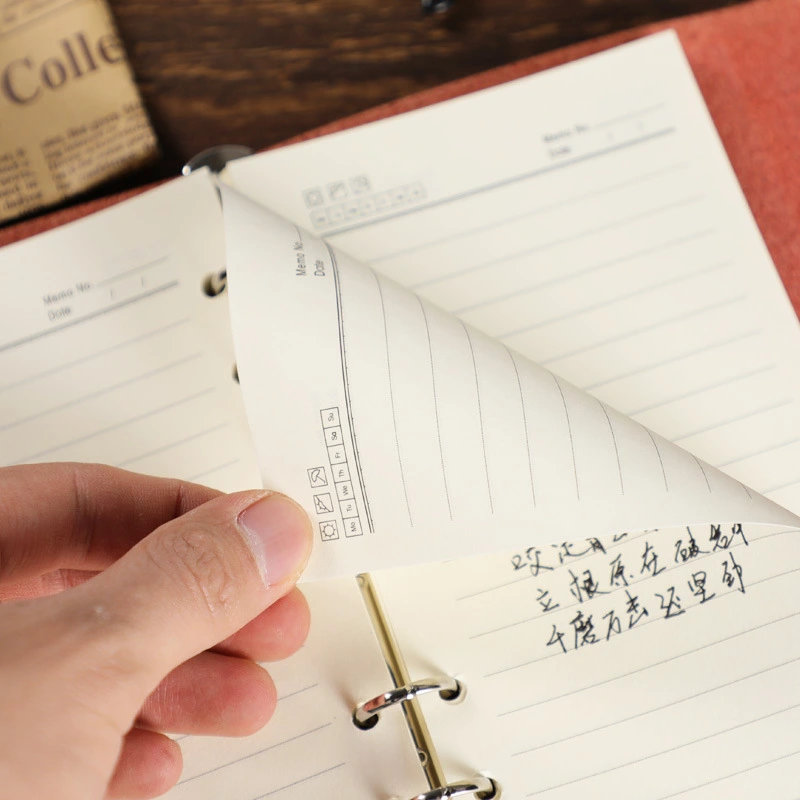 Colle
Memo No.
Date / /
Memo No.
Date / /
Memo No.
Date
Mo Tu We Th Fr Sa Su
咬定青
立根原在破岩中
千磨万击还坚劲